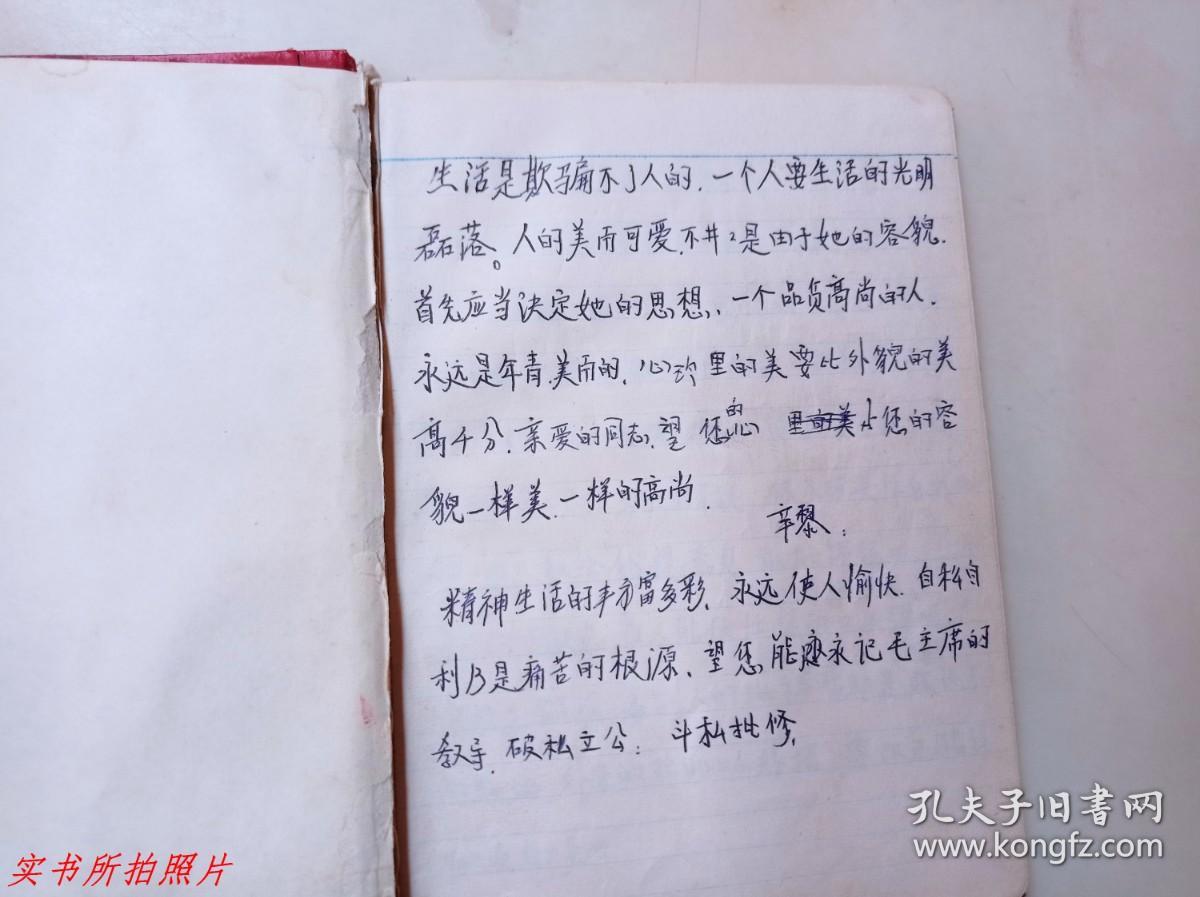 生活是欺骗不了人的.一个人要生活的光明
磊落。人的美而可爱.不并是由于她的容貌.
首先应当决定她的思想、一个品质高尚的人.
永远是年青.美而的.心 里的美要比外貌的美
高千分.亲爱的同志、望您的心 比您的容
貌一样美.一样的高尚.
辛黎:
精神生活的丰富多彩、永远使人愉快.自私自
利 是痛苦的根源、望您能 永记毛主席的
教导.破私立公:斗私批修.
孔夫子旧书网
www.kongfz.com
实书所拍照片